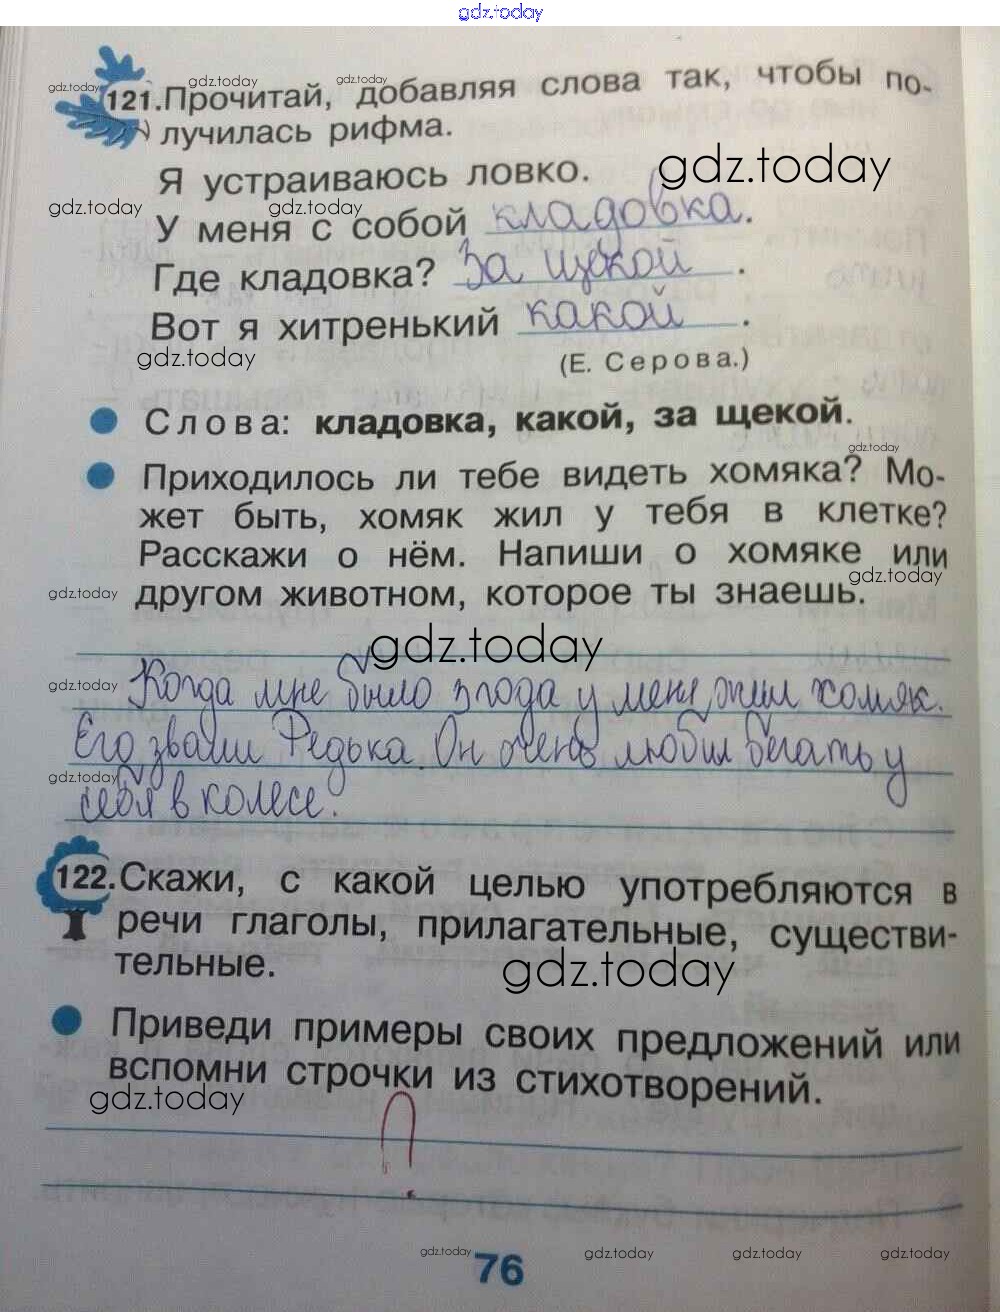 gdz.today
gdz.today gdz.today gdz.today
121. Прочитай, добавляя слова так, чтобы по-
лучилась рифма.
Я устраиваюсь ловко. gdz.today
gdz.today gdz.today
У меня с собой кладовка.
Где кладовка? За щекой.
Вот я хитренький какой.
gdz.today
(Е. Серова.)
Слова: кладовка, какой, за щекой.
gdz.today
Приходилось ли тебе видеть хомяка? Мо-
жет быть, хомяк жил у тебя в клетке?
Расскажи о нём. Напиши о хомяке или
gdz.today
gdz.today
другом животном, которое ты знаешь.
gdz.today
gdz.today
Когда мне было 3 года у меня жил хомяк.
Его звали Федька. Он очень любил бегать у
gdz.today
себя в колесе.
122. Скажи, с какой целью употребляются в
речи глаголы, прилагательные, существи-
тельные.
gdz.today
Приведи примеры своих предложений или
вспомни строчки из стихотворений.
gdz.today
?
gdz.today 76 gdz.today gdz.today gdz.today